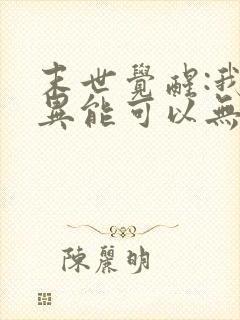 末世覺醒:我
異能可以無
陳麗明